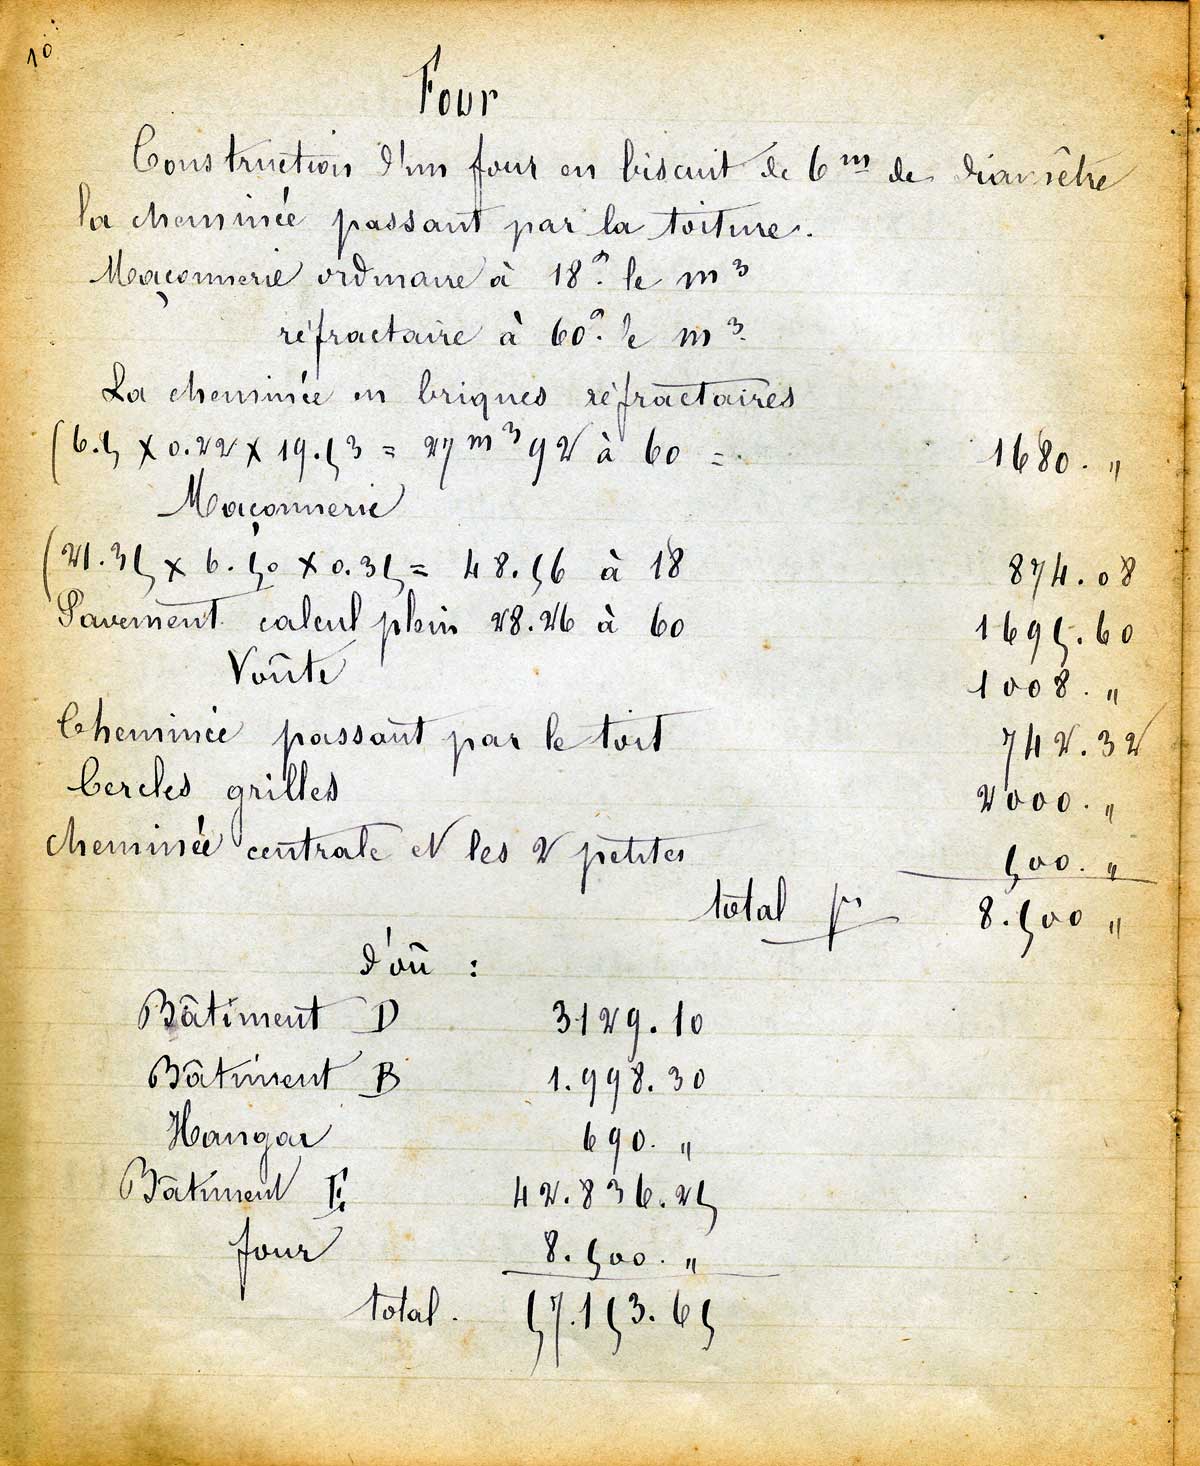 10
Four
Construction d'un four en biscuit de 6m de diamêtre
la cheminée passant par la toiture.
Maçonnerie ordinaire à 18f. le m3
réfractaire à 60f. le m3.
La cheminée en briques réfractaires
(6.5 x 0.22 x 19.53 = 27m3 92 à 60 = 1680. "
Maçonnerie
(21.35 x 6.50 x 0.35 = 48.56 à 18 874.08
Pavement calcul plein 28.26 à 60 1695.60
Voûte 1008. "
Cheminée passant par le toit 742.32
Cercles grilles 2000. "
cheminée centrale et les 2 petites 500. "
total fr 8.500 "
d'où :
Bâtiment D 3129.10
Bâtiment B 1.998.30
Hangar 690. "
Bâtiment E 42.836.25
four 8.500. "
total. 57.153.65